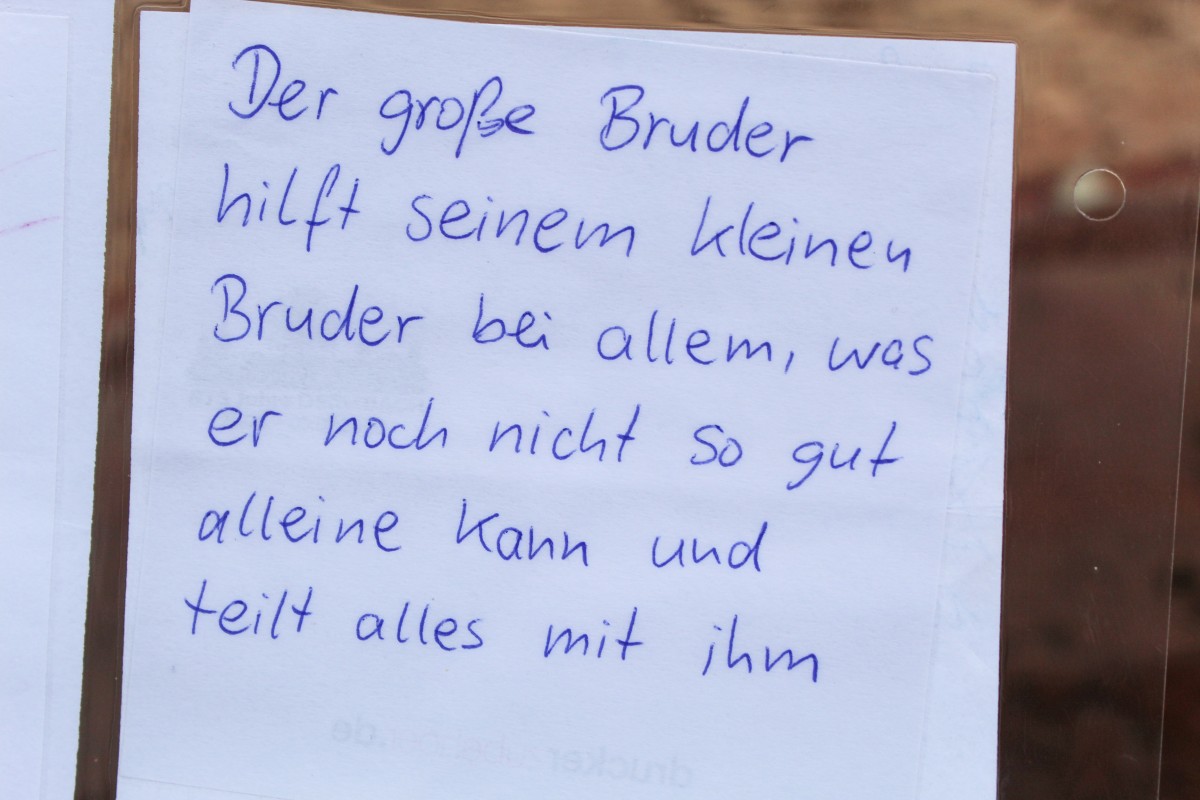 Der große Bruder
hilft seinem kleinen
Bruder bei allem, was
er noch nicht so gut
alleine kann und
teilt alles mit ihm